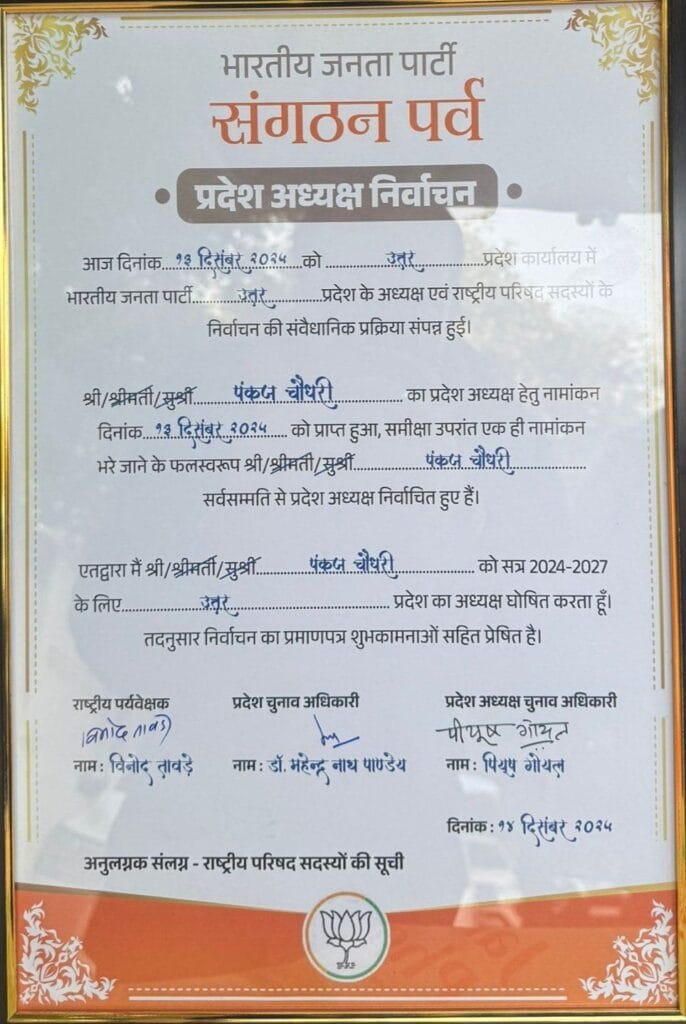 भारतीय जनता पार्टी
संगठन पर्व
प्रदेश अध्यक्ष निर्वाचन
आज दिनांक १३ दिसंबर २०२५ को उत्तर प्रदेश कार्यालय में
भारतीय जनता पार्टी उत्तर प्रदेश के अध्यक्ष एवं राष्ट्रीय परिषद सदस्यों के
निर्वाचन की संवैधानिक प्रक्रिया संपन्न हुई।
श्री/श्रीमती/सुश्री पंकज चौधरी का प्रदेश अध्यक्ष हेतु नामांकन
दिनांक १३ दिसंबर २०२५ को प्राप्त हुआ, समीक्षा उपरांत एक ही नामांकन
भरे जाने के फलस्वरूप श्री/श्रीमती/सुश्री पंकज चौधरी
सर्वसम्मति से प्रदेश अध्यक्ष निर्वाचित हुए हैं।
एतद्वारा मैं श्री/श्रीमती/सुश्री पंकज चौधरी को सत्र 2024-2027
के लिए उत्तर प्रदेश का अध्यक्ष घोषित करता हूँ।
तदनुसार निर्वाचन का प्रमाणपत्र शुभकामनाओं सहित प्रेषित है।
राष्ट्रीय पर्यवेक्षक प्रदेश चुनाव अधिकारी प्रदेश अध्यक्ष चुनाव अधिकारी
विनोद तावडे पीयूष गोयल
नाम : विनोद तावड़े नाम : डॉ. महेन्द्र नाथ पाण्डेय नाम : पियूष गोयल
दिनांक : १४ दिसंबर २०२५
अनुलग्नक संलग्न - राष्ट्रीय परिषद सदस्यों की सूची